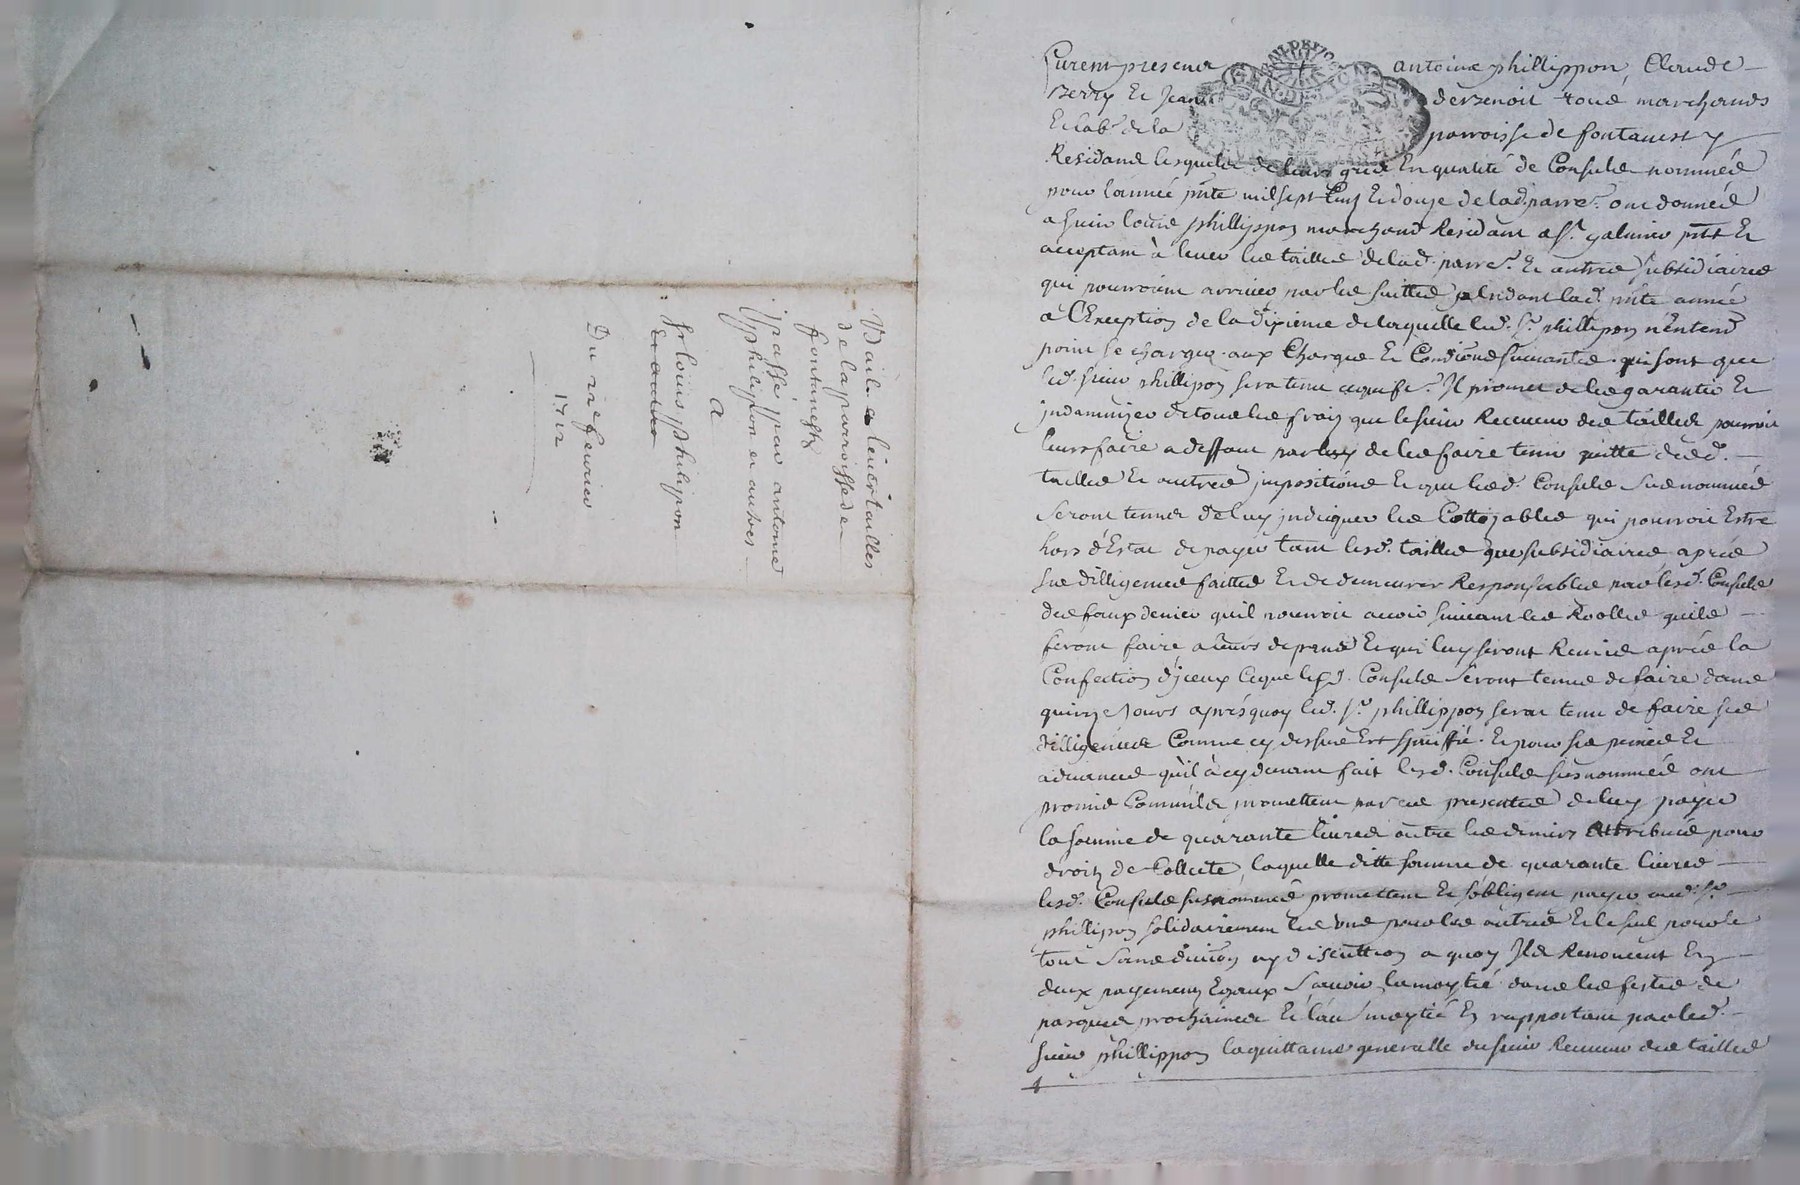 Bail a lever tailles
de la parroisse de
fontanest
passé par antoine
philippon et autres
A
Sr louis philipon
Du 22e fevrier
1712
Furent presents antoine phillippon, Claude
Berry Et Jean deBenoit tous marchands
Et lab.rs de la parroisse de fontanest y
Residants lesquels de leurs grés En qualité de Consuls nommés
pour l'année pnte mil sept Cens Et douze de lad. parre. ont donnés
a sieur louis phillippon marchand Residant a St. galmier pnt Et
acceptant à lever les tailles de lad. parre. Et autres subsidiaires
qui pourroient arriver par les suittes pendant lad. pnte année
a l'Exception de la dixieme de laquelle led. Sr. phillippon n'entend
point se charger aux Charges Et Conditions suivantes qui sont que
led. sieur phillippon sera tenu Il promet de les garantir Et
indamnizer de tous les frais que le sieur Receveur des tailles pourroit
leurs faire a deffaut par luy de les faire tenir quitte desd.
tailles Et autres impositions Et que lesd. Consuls susnommés
seront tenus de luy indiquer les Cottizables qui pourroit Estre
hors d'Estat de payer tant lesd. tailles que subsidiaires aprés
ses dilligences faittes Et de demeurer Responsables par lesd. Consuls
des faux denier quil pourroit avoir suivant les Roolles quils
feront faire a leurs depends Et qui luy seront Remis aprés la
Confection d'jceux Ce que lesd. Consuls seront tenus de faire dans
quinze Jours aprés quoy led. Sr. phillippon serat tenu de faire ses
dilligences Comme cy dessus Est speciffié. Et pour ses peines Et
advances qu'il à cy devant fait lesd. Consuls susnommés ont
promis Comm'ils promettent par ces presentes de luy payer
la somme de quarante livres outre les deniers attribués pour
droit de Collecte, laquelle ditte somme de quarante livres
lesd. Consuls susnommés promettent Et s'obligent payer aud. Sr.
philipon solidairement les uns pour les autres Et le seul pour le
tout sans division ny discuttion a quoy Ils Renoncent En
deux payements Egaux sçavoir la moytié dans les festes de
pasques prochaines Et l'au. moytié En rapportant par led.
sieur phillippon la quittance generalle du sieur Receveur des tailles